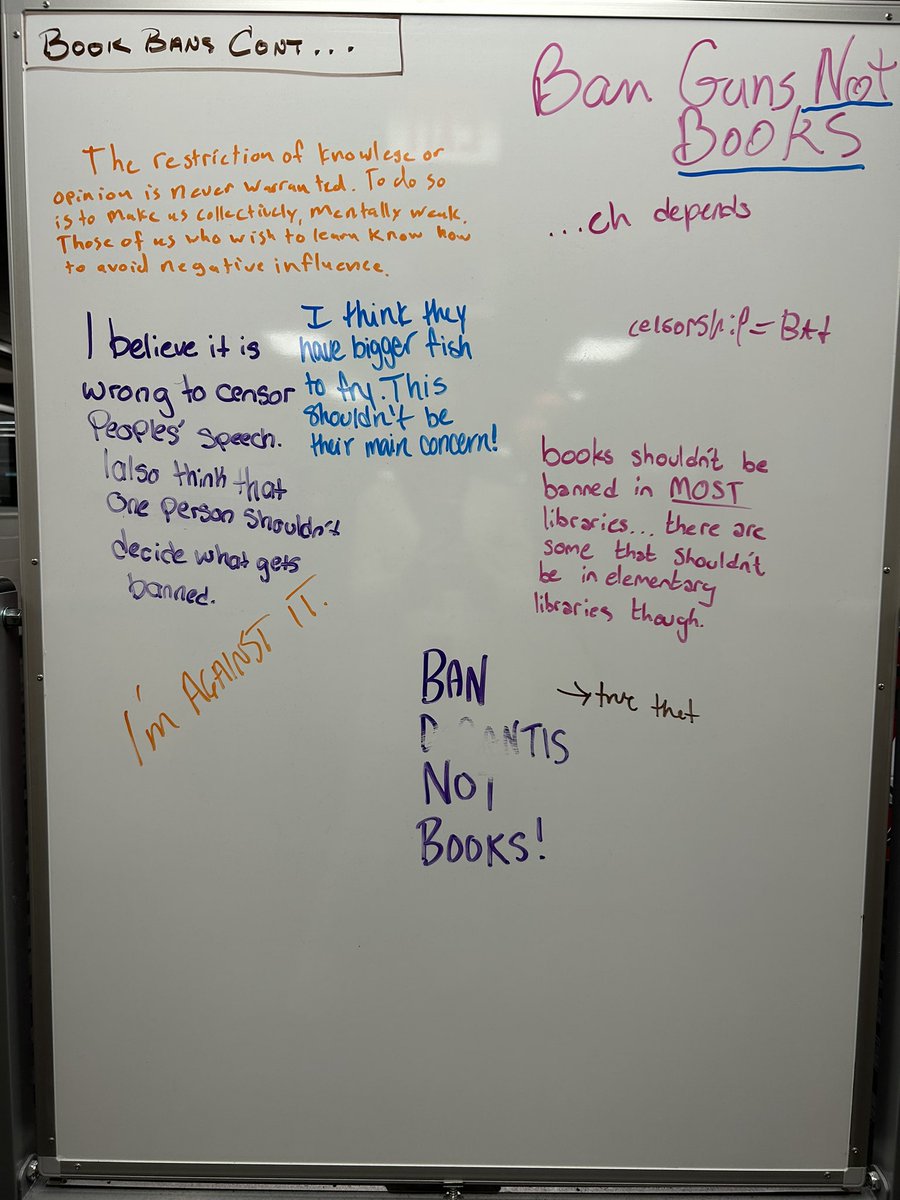 BOOK BANS CONT...
Ban Guns Not
BOOKS
...eh depends
The restriction of knowlege or
opinion is never warranted. To do so
is to make us collectively, mentally weak.
Those of us who wish to learn know how
to avoid negative influence.
I believe it is
wrong to censor
Peoples' speech.
I also think that
one person shouldn't
decide what gets
banned.
I think they
have bigger fish
to fry. This
shouldn't be
their main concern!
censorship = BAd
books shouldn't be
banned in MOST
libraries... there are
some that shouldn't
be in elementary
libraries though.
I'm AGAINST IT.
BAN
→ true that
NOT
BOOKS!